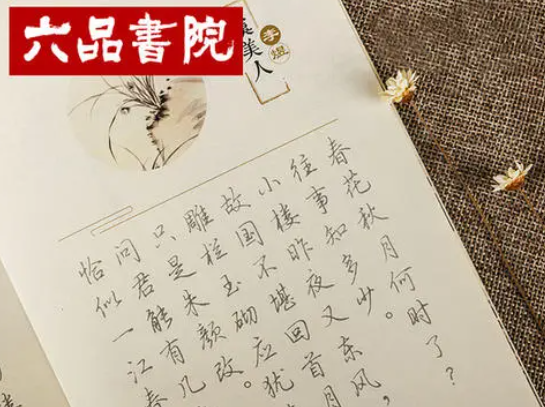 六品書院
虞美人
李煜
春花秋月何时了?
往事知多少。
小楼昨夜又东风,
故国不堪回首月
雕栏玉砌应犹
只是朱颜改。
问君能有几
恰似一江春